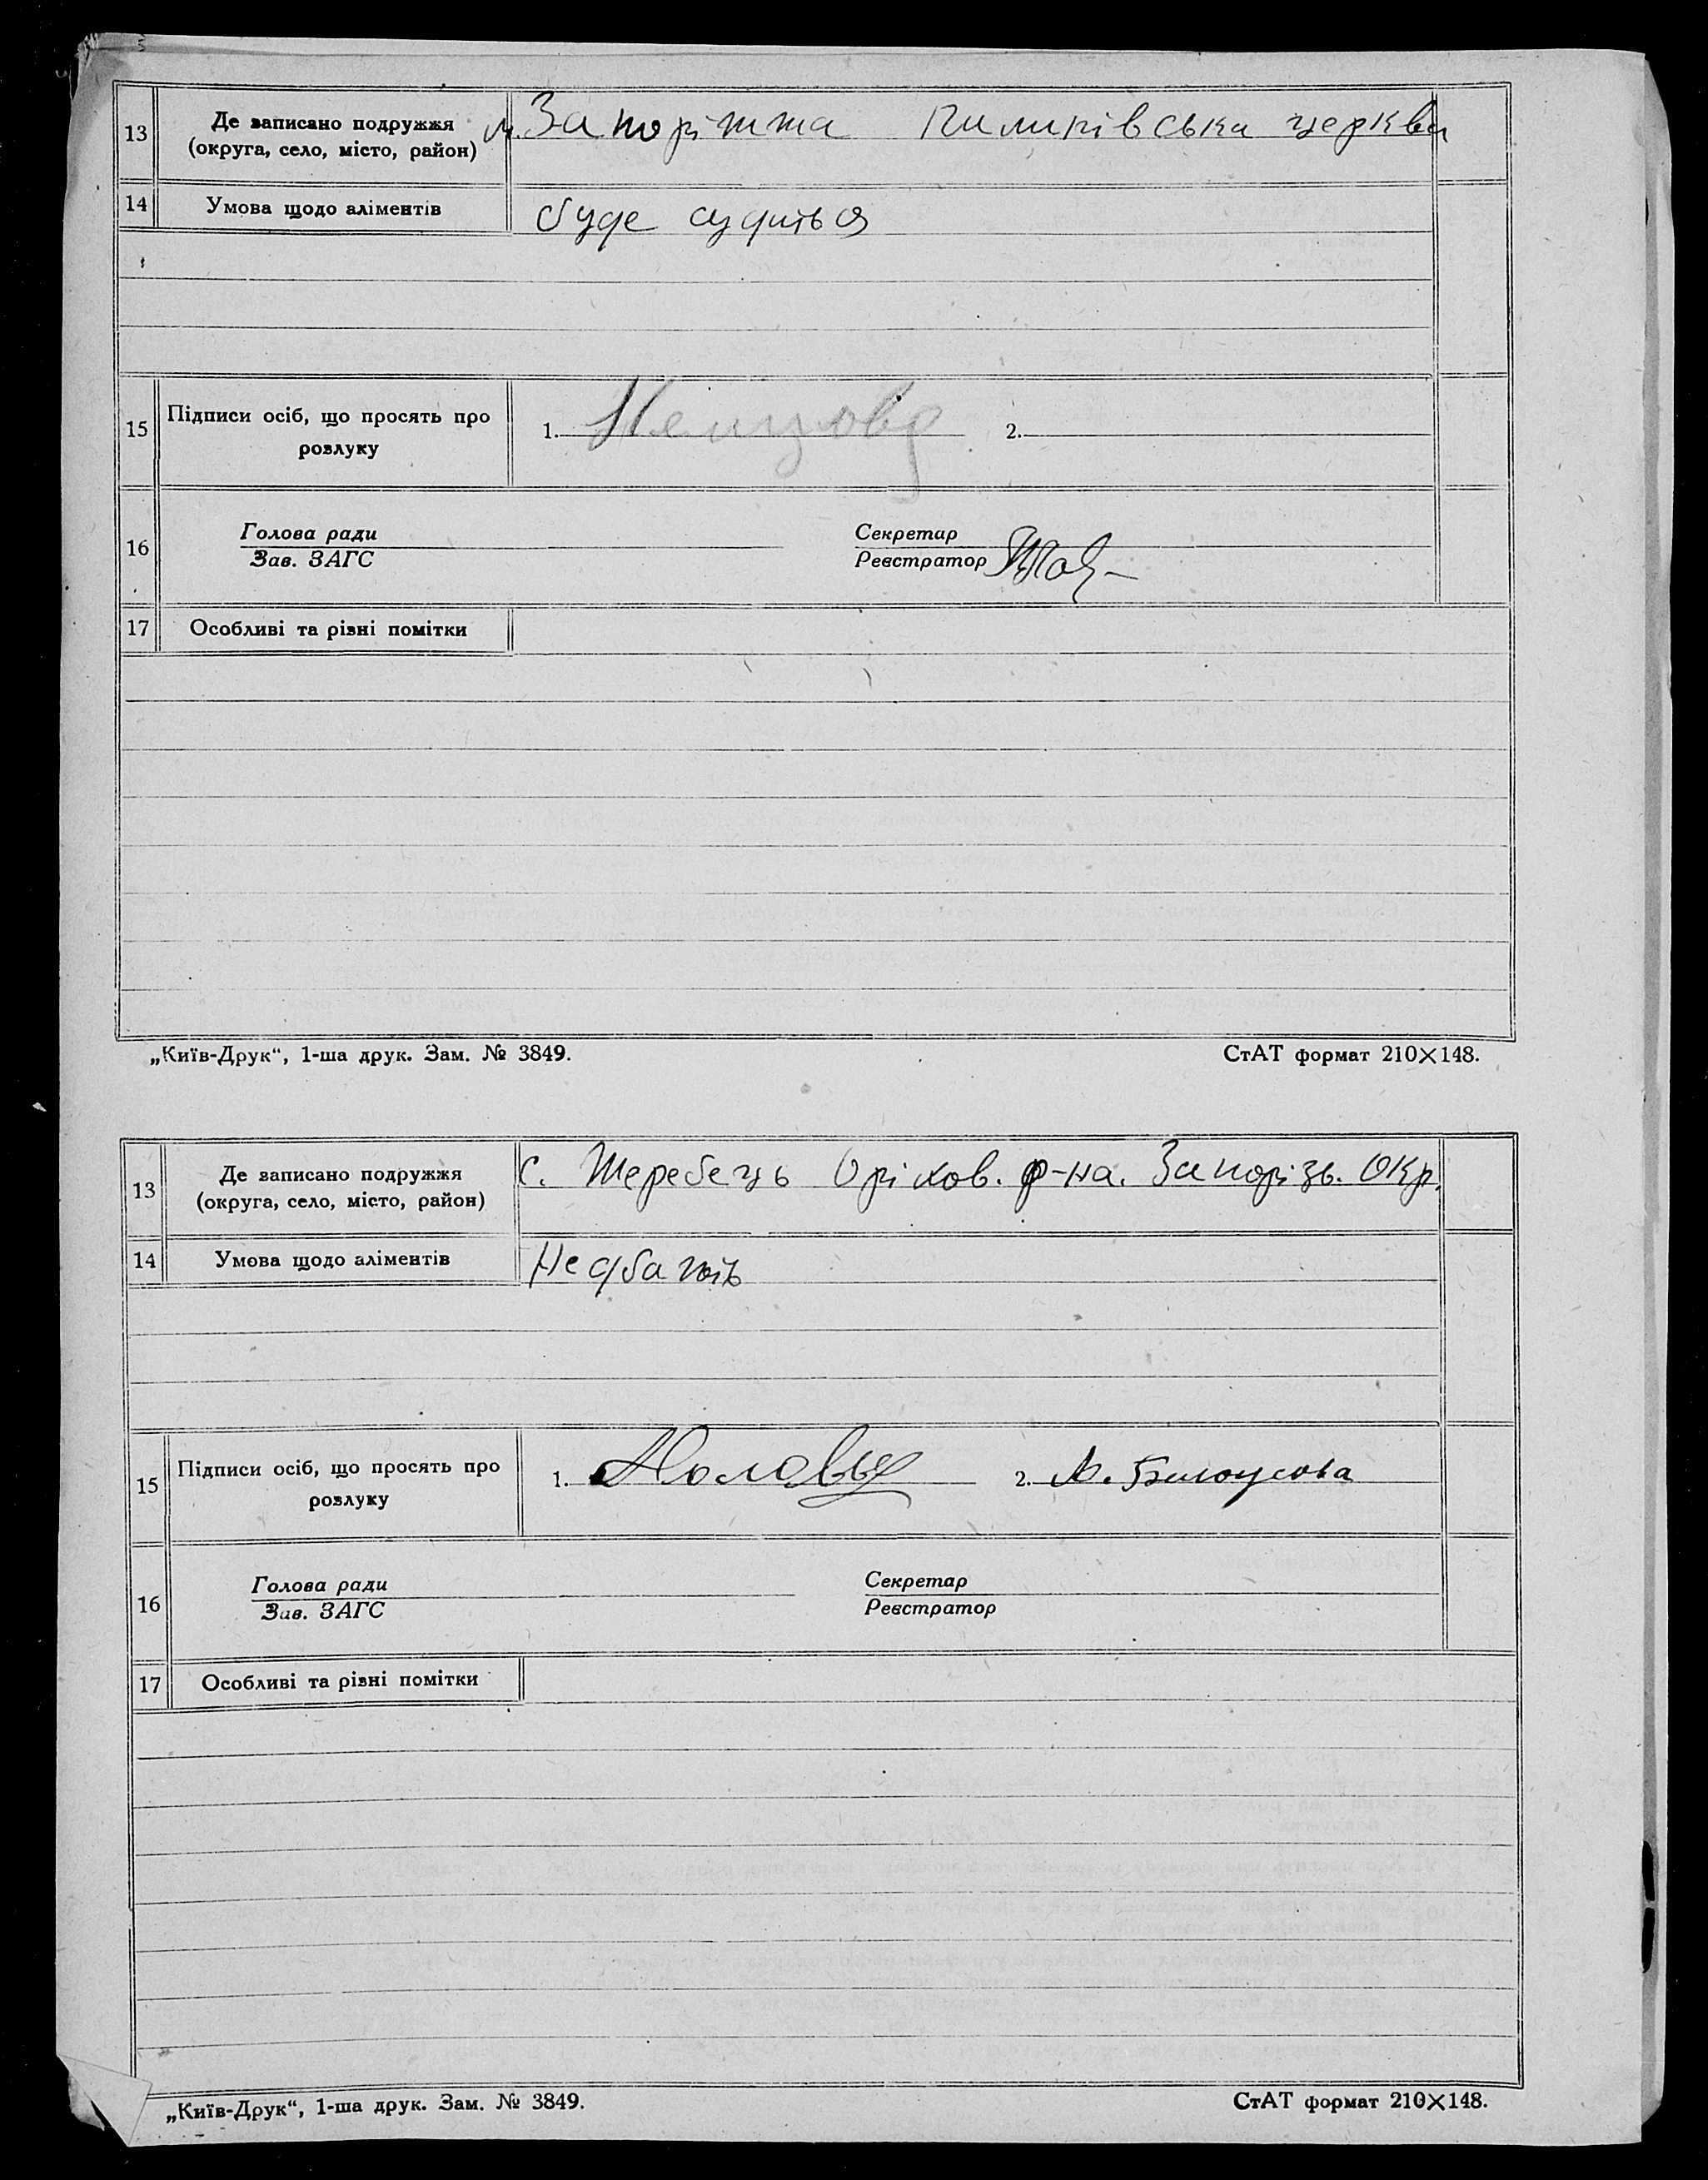 13 Де записано подружжя м. Запоріжжа церква
(округа, село, місто, район)
14 Умова щодо аліментів буде судиться
15 Підписи осіб, що просять про 1. Немцова 2.
розлуку
Голова ради Секретар
16 Зав. ЗАГС Реєстратор
17 Особливі та різні помітки
„Київ-Друк“, 1-ша друк. Зам. № 3849. СтАТ формат 210×148.
13 Де записано подружжя С. Жеребець Оріхов. р-на. Запорізь. Окр.
(округа, село, місто, район)
14 Умова щодо аліментів
15 Підписи осіб, що просять про 1. 2. М. Билоусова
розлуку
Голова ради Секретар
16 Зав. ЗАГС Реєстратор
17 Особливі та різні помітки
„Київ-Друк“, 1-ша друк. Зам. № 3849. СтАТ формат 210×148.